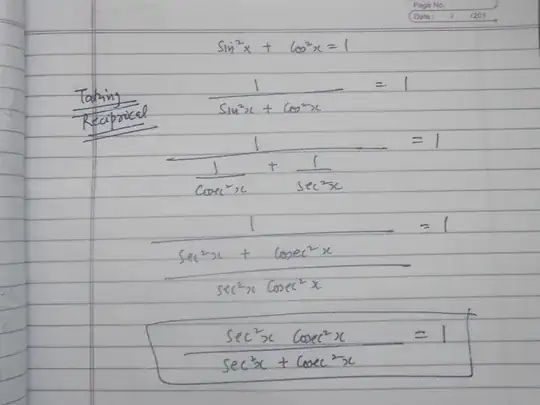 Page No.
Date: / /201
Sin²x + Cos²x = 1
Taking
Reciprocal
1 / (Sin²x + Cos²x) = 1
1 / (1/Cosec²x + 1/Sec²x) = 1
1 / ((Sec²x + Cosec²x) / (Sec²x Cosec²x)) = 1
(Sec²x Cosec²x) / (Sec²x + Cosec²x) = 1